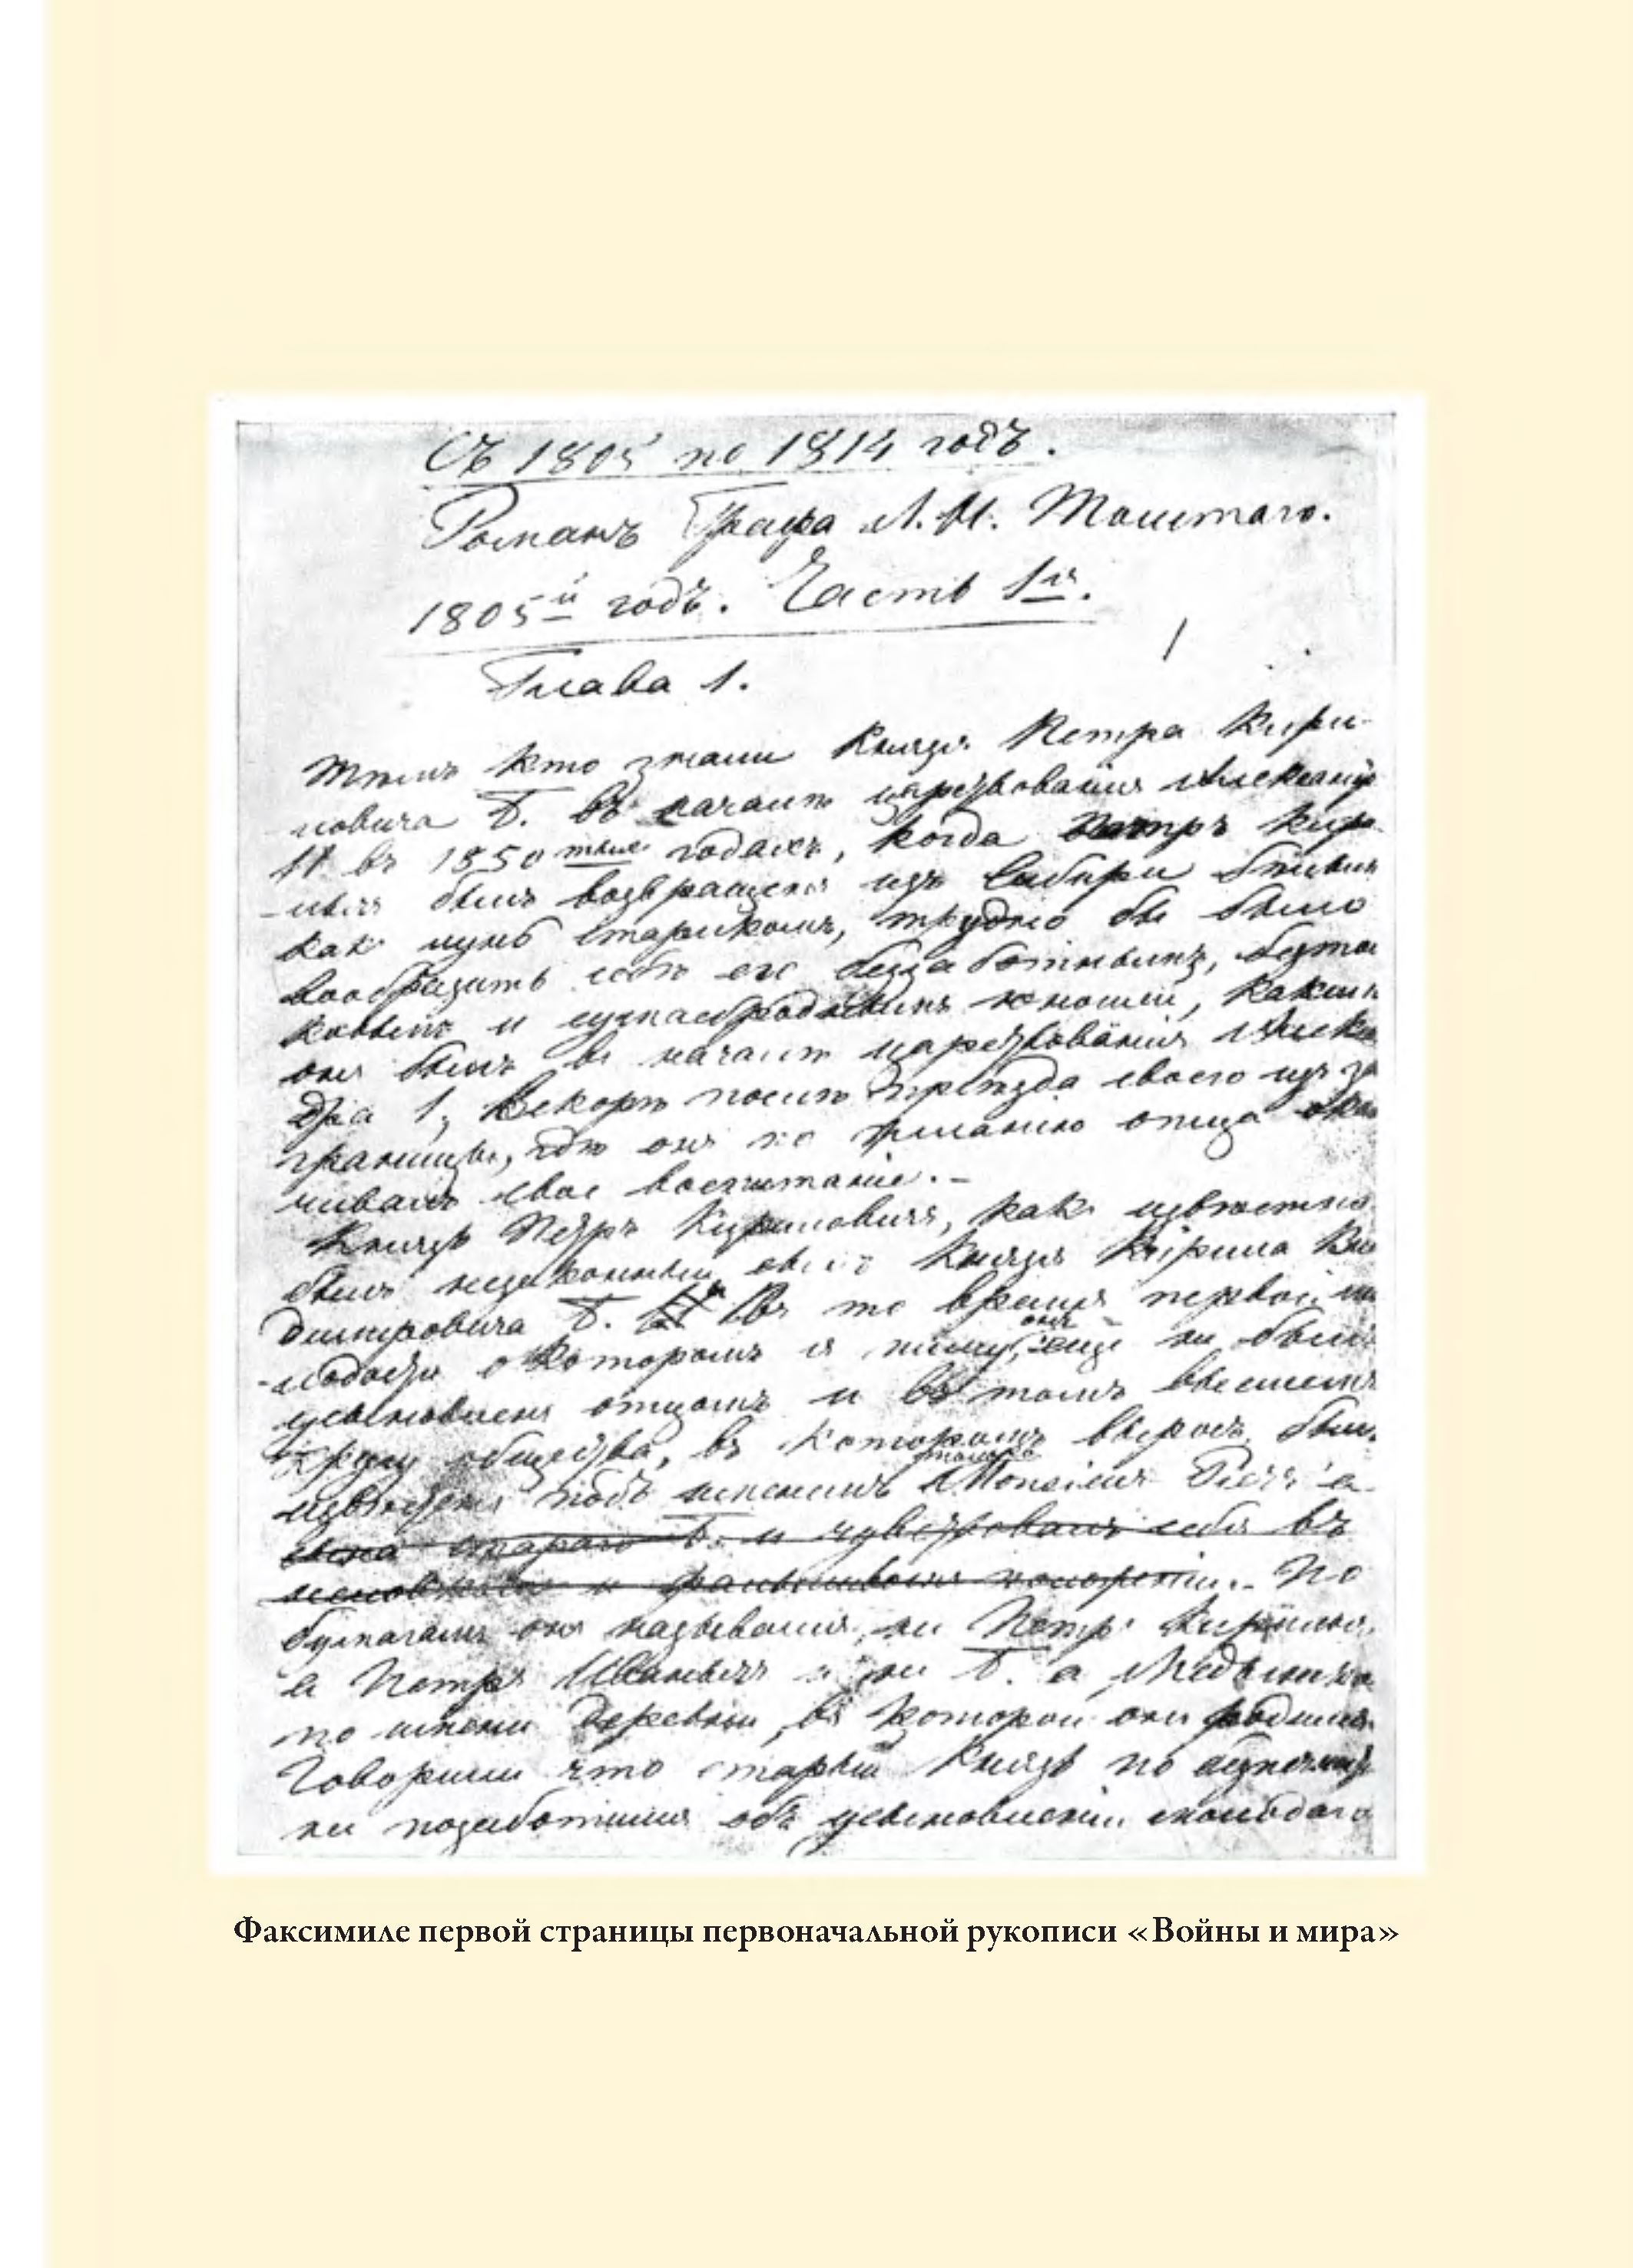 Съ 1805 по 1814 годъ.
Романъ Графа Л. Н. Толстаго.
1805й годъ. Часть 1я.
Глава 1.
Тѣмъ кто знали Князя Петра Кири-
ловича Б. въ началѣ царствованія Александ
II въ 1850тыхъ годахъ, когда Петръ Кири
лычь былъ возвращенъ изъ Сибири бѣлымъ
какъ лунь старикомъ, трудно бы было
вообразить себѣ его беззаботнымъ, безтол
ковымъ и сумасброднымъ юношей, какимъ
онъ былъ въ началѣ царствованія Алекса
дра 1, вскорѣ послѣ пріезда своего изъ за
границы, гдѣ онъ по желанію отца окан
чивалъ свое воспитаніе. –
Князь Петръ Кириловичъ, какъ извѣстно
былъ незаконный сынъ Князя Кирила Вла
димировича Б. Въ то время первой мо
-лодости о которомъ я пишу, онъ еще не былъ
усыновленъ отцомъ и въ томъ высшемъ
кругу общества, въ которомъ выросъ, былъ
извѣстенъ подъ именемъ только Monsieur Pierr'а
сына стараго Б. и чувствовалъ себя въ
и фальшивомъ положеніи. По
бумагамъ онъ назывался не Петръ Кирилычь
а Петръ Иванычь и не Б. а Медынскій
по имени деревни, въ которой онъ родился.
Говорили что старый Князь по безпечности
не позаботился объ усыновленіи молодаго
Факсимиле первой страницы первоначальной рукописи «Войны и мира»